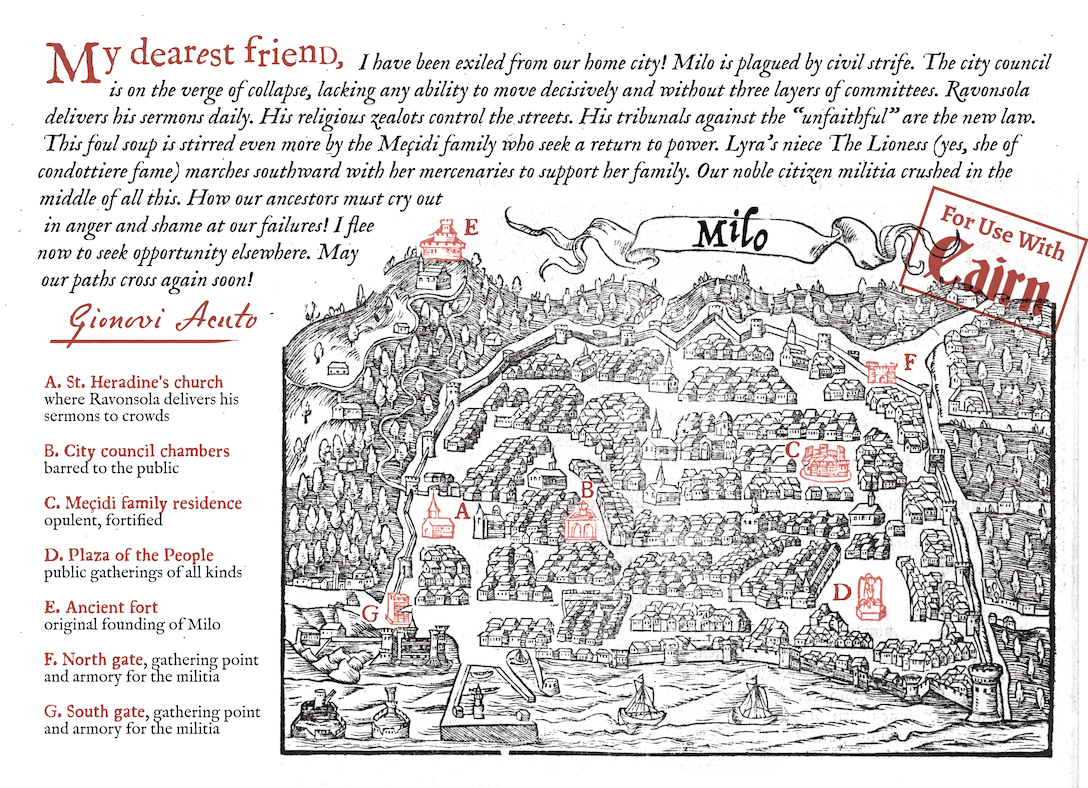 My dearest friend, I have been exiled from our home city! Milo is plagued by civil strife. The city council
is on the verge of collapse, lacking any ability to move decisively and without three layers of committees. Ravonsola
delivers his sermons daily. His religious zealots control the streets. His tribunals against the “unfaithful” are the new law.
This foul soup is stirred even more by the Meçidi family who seek a return to power. Lyra's niece The Lioness (yes, she of
condottiere fame) marches southward with her mercenaries to support her family. Our noble citizen militia crushed in the
middle of all this. How our ancestors must cry out
in anger and shame at our failures! I flee
now to seek opportunity elsewhere. May
our paths cross again soon!
Gionovi Acuto
Milo
For Use With
Cairn
A. St. Heradine's church
where Ravonsola delivers his
sermons to crowds
B. City council chambers
barred to the public
C. Meçidi family residence
opulent, fortified
D. Plaza of the People
public gatherings of all kinds
E. Ancient fort
original founding of Milo
F. North gate, gathering point
and armory for the militia
G. South gate, gathering point
and armory for the militia
E
F
C
B
A
D
G